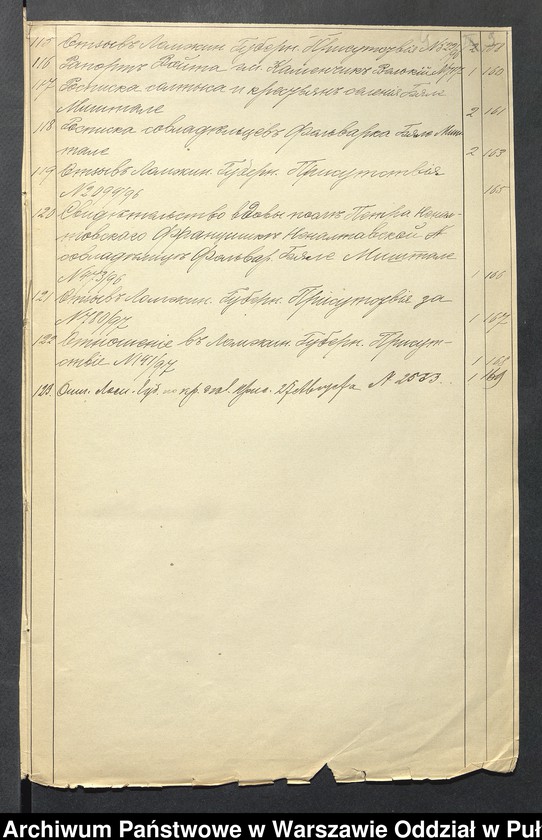 115 Отзывъ Ломжин. Губерн. Присутствія № 2
116 Рапортъ Войта гм. Каменчикъ 1 160
117 Росписка солтыса и крестьянъ селенія Бяле
Миштале 2 161
118 Росписка совладѣльцевъ Фольварка Бяле Миш-
тале 2 163
119 Отзывъ Ломжин. Губерн. Присутствія
№ 2094/96 165
120 Свидѣтельство вдовы Петра
совладѣлицѣ Фольвар. Бяле Миштале
№ 473/96 1 166
121 Отзывъ Ломжин. Губерн. Присутствія за
№ 780/97 1 167
122 Отношеніе въ Ломжин. Губерн. Присут-
ствіе № 141/97 1 168
123. Лом. Губ. по кр. дѣл. № 2533. 1 169
Archiwum Państwowe w Warszawie Oddział w Puł